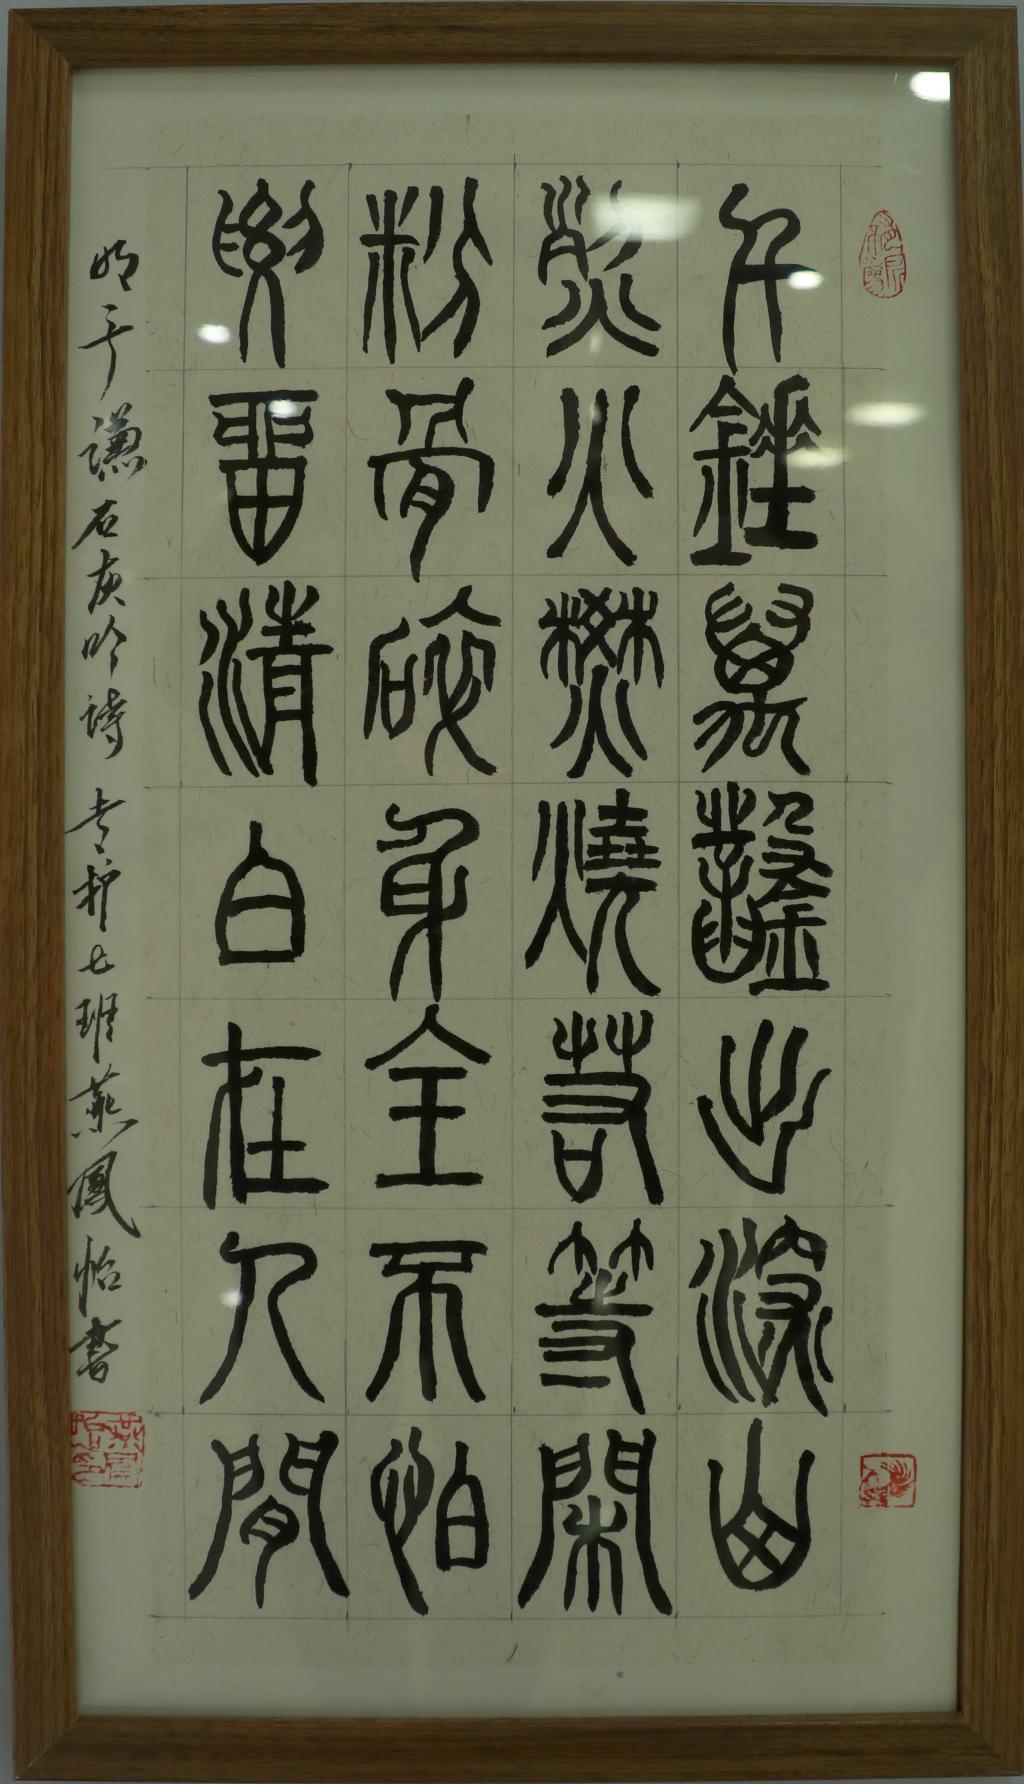 千錘萬鑿出深山
烈火焚燒若等閑
粉骨碎身全不怕
要留清白在人間
明于謙石灰吟詩 专护七班燕鳳怡書